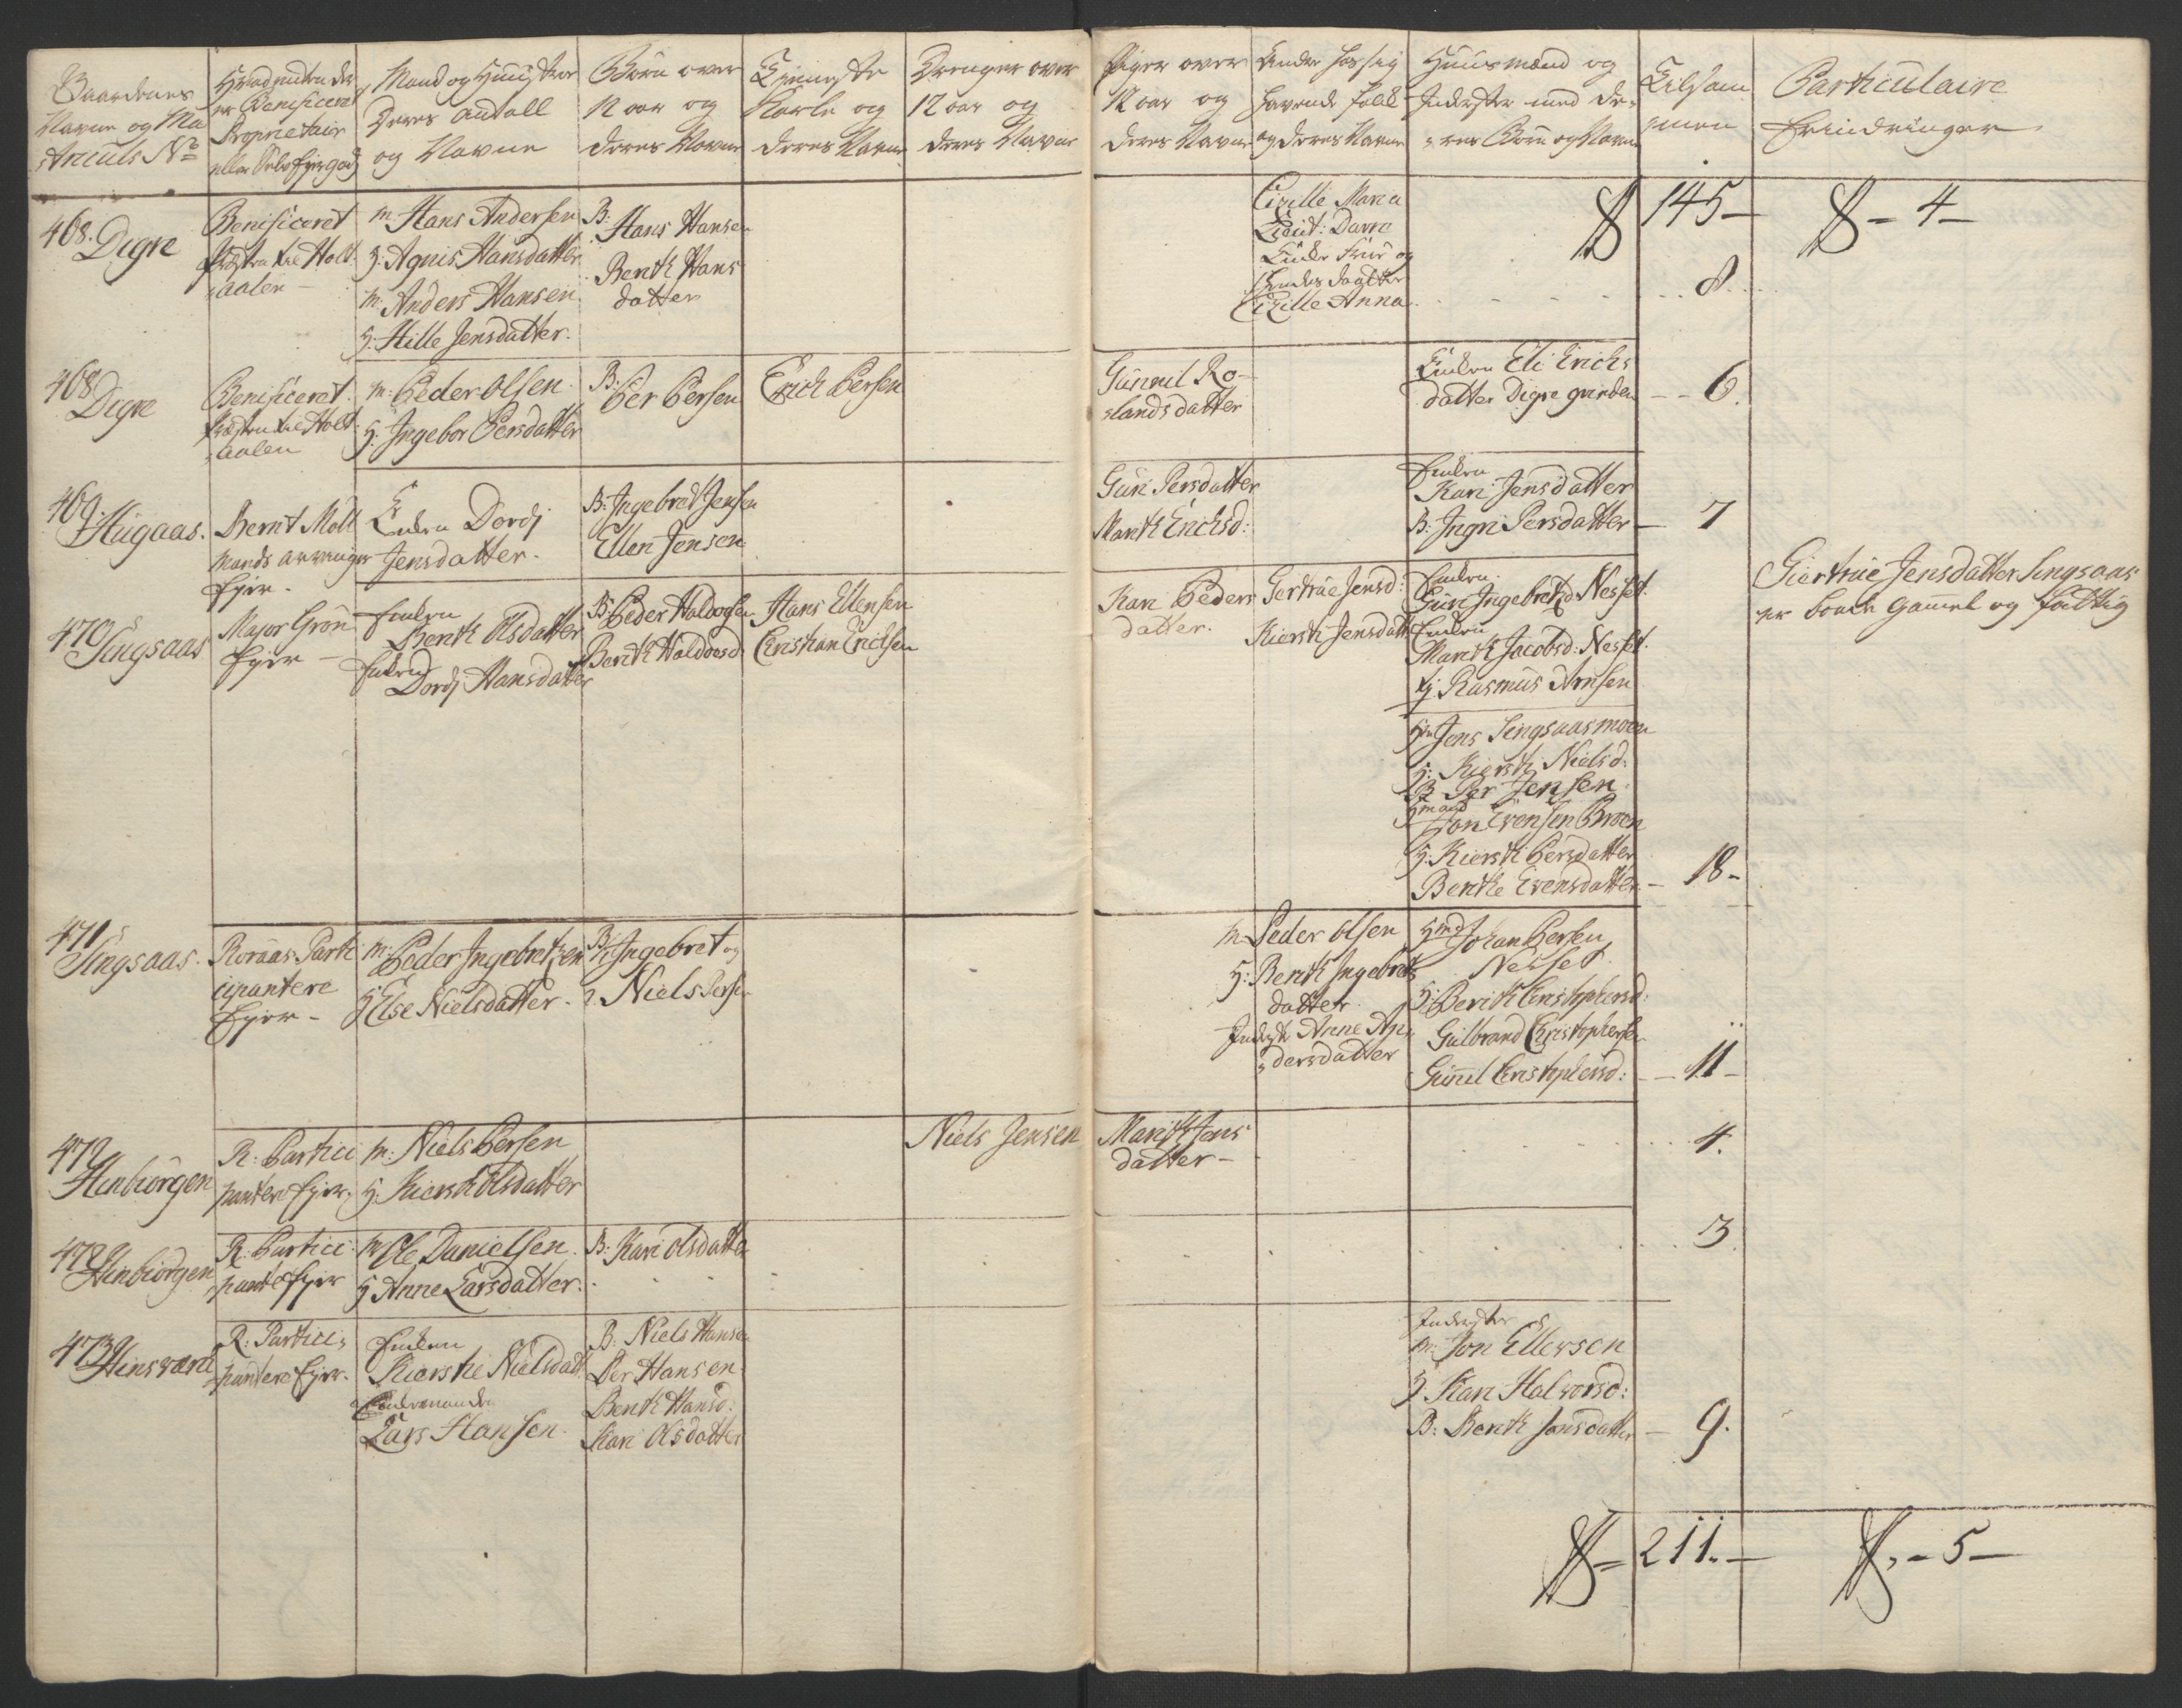 Gaardenes
Navne og Ma
triculs No
er Beneficeret
Proprietair
Mand og Hustrue
Deres Antall
og Navne
Børn over
12 aar og
deres Navne
Tieneste
Karle og
deres Navne
Drenger over
12 aar og
deres Navne
Piger over
12 aar og
deres Navne
havende folk
og deres Navne
Huusmænd og
Inderster med de¬
res Børn og Navne
Tilsam
men
Particulaire
Erindringer
145 —
4 —
468. Digre
Benificeret
Holt¬
aalen —
M: Hans Andersen
H: Agnis Hansdatter
M: Anders Hansen
H: Hille Jensdatter.
B:
Hans Hansen
Berith Hans
datter
Cizille Maria
Lieut: Darre
Enke Frue og
hendes Dagtter
Cizille Anna
8.
468
Digre
Benificeret
Holt
aalen
M: Peder Olsen
H: Ingebor Persdatter
B:
Per Persen
Erich Persen
Gunnil Ro¬
landsdatter
Enken Eli Erichs
datter Digre
6.
469.
Hugaas.
Bernt Molt
mands arvinger
Ejer.
Enken Dordj
Jensdatter.
B: Ingebret Jensen
Ellen Jensen
Guri Persdatter
Marith Erichsd:
Enken
Kari Jensdatter
B: Ingri Persdatter
7
470
Singsaas
Major Grøn
Ejer —
Enken
Berith Olsdatter
Enken
Dordj Hansdatter
B: Peder Haldorsen
Berith Haldorsd
Hans Ellensen
Christian Erichsen
Kari Peders
datter.
Gertrue Jensd:
Kiersti Jensdatter
Enken
Guri Ingebretzd Nesset.
Enken
Marith Jacobsd: Nesset.
Rasmus Arnsen
Jens Singsaasmoen
H: Kiersti Nielsd:
B Per Jensen.
Hmand
Jon Evensen Broen
H: Kiersti Persdatter
Berithe Evensdatter
18 —
Giertrue Jensdatter Singsaas
er baade gammel og fattig
471
Singsaas.
Roraas Parti
cipantere
Ejer —
M: Peder Ingebretzen
H Else Nielsdatter.
B: Ingebret og
Niels Persen
M: Peder Olsen
H: Berith Ingebretz
datter
Inderste Anne An¬
dersdatter
Hmd
Johan Persen
Nesset.
H: Berith Christophersd:
Gulbrand Christophersen
Gunil Christophersd:
11 —
472
Hinbiörgen
R: Partici
pantere Ejer.
M: Niels Persen
H: Kiersti Olsdatter
Niels Jensen
Marith Jens
datter —
4.
472
Hinbiörgen
R: Partici
pantere Ejer
M Ole Danielsen
H Anne Larsdatter.
B: Kari Olsdatter
3.
473
Hinsværk
R: Partici¬
pantere Ejer.
Enken
Kierstie Nielsdatt
Enkemanden
Lars Hansen.
B: Niels Hansen
Per Hansen
Berith Hansd:
Kari Olsdatter
Inderster
M: Jon Ellersen
H Kari Halvorsd:
B: Berith Jonsdatter
9.
211. —
5 —